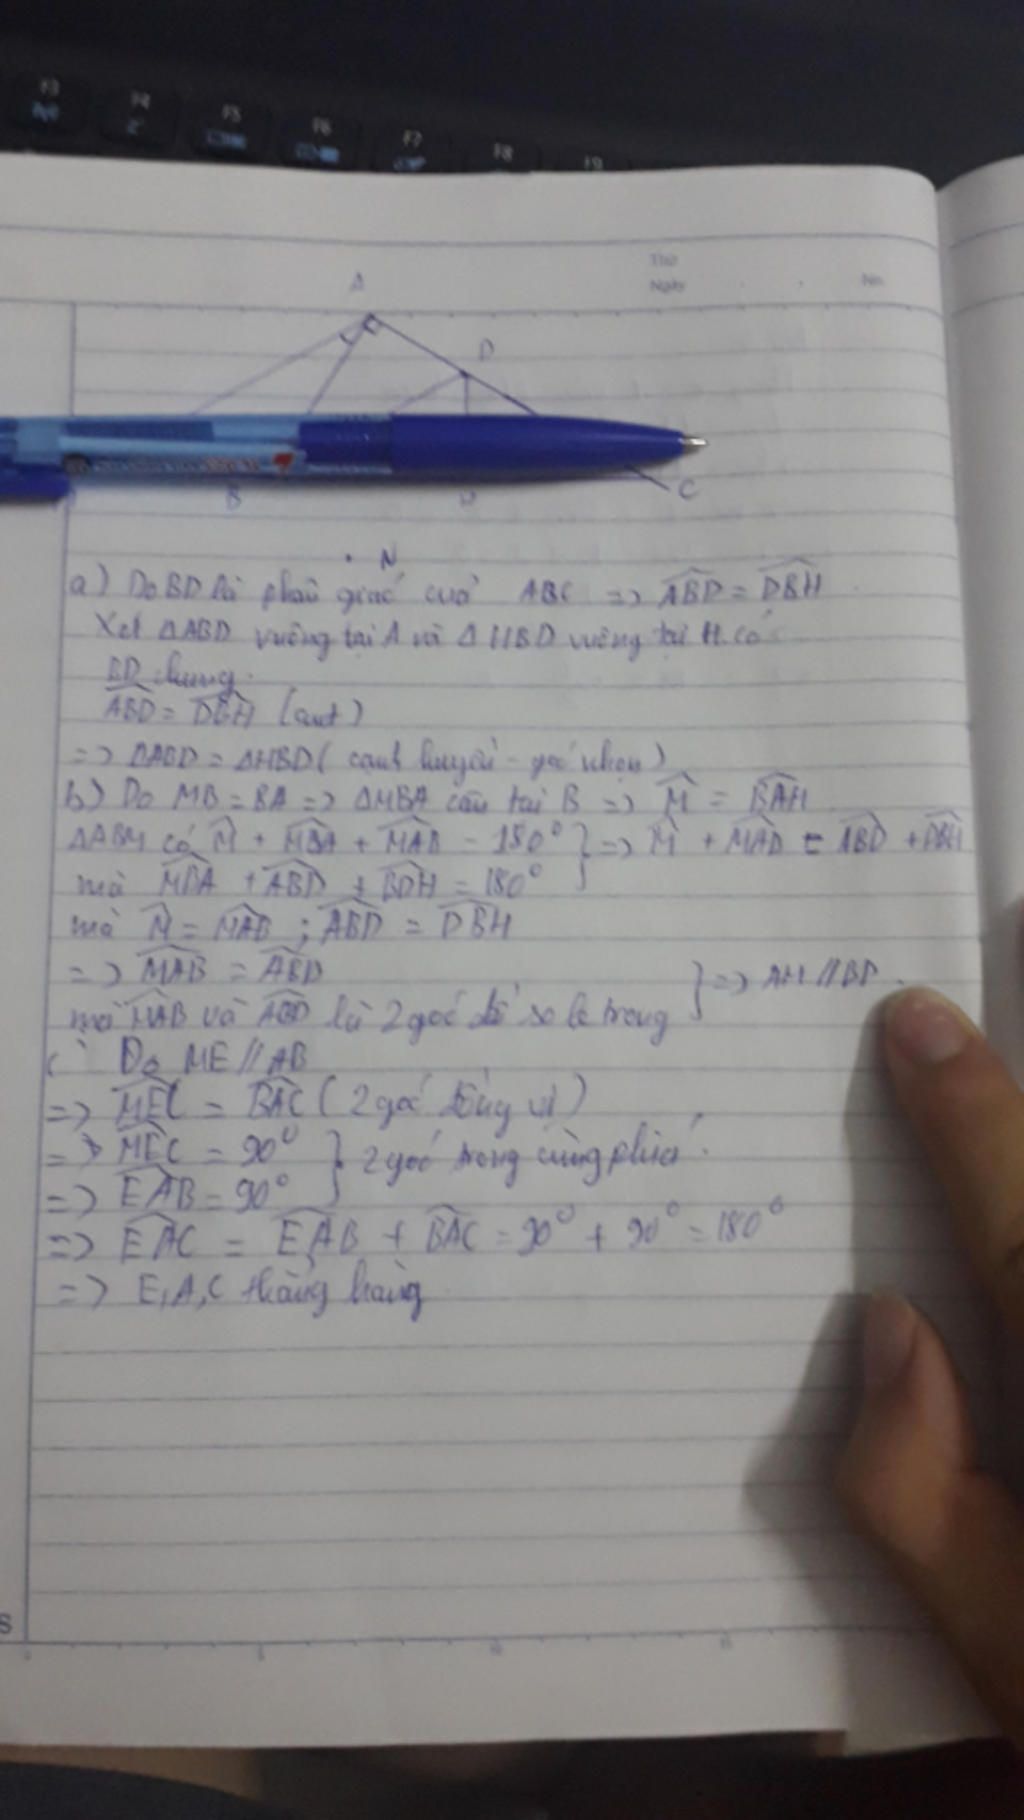 F3
F4
F5
F6
F7
F8
F9
Thứ
Ngày
No.
A
D
B
H
C
N
a) Do BD là phân giác của ABC => ABD = DBH
Xét ΔABD vuông tại A và ΔHBD vuông tại H có
BD chung
ABD = DBH (cmt)
=> ΔABD = ΔHBD (cạnh huyền - góc nhọn)
b) Do MB = BA => ΔMBA cân tại B => M = BAH
ΔABM có M + MBA + MAB = 180° } => M + MAD = ABD + DBH
mà MBA + ABD + BDH = 180°
mà M = MAB ; ABD = DBH
=> MAB = ABD
mà MAB và ABD là 2 góc ở so le trong } => AM // BD.
c) Do ME // AB
=> MEC = BAC (2 góc đồng vị)
=> MEC = 90° } 2 góc trong cùng phía.
=> EAB = 90°
=> EAC = EAB + BAC = 90° + 90° = 180°
=> E, A, C thẳng hàng
S
0
5
10
15